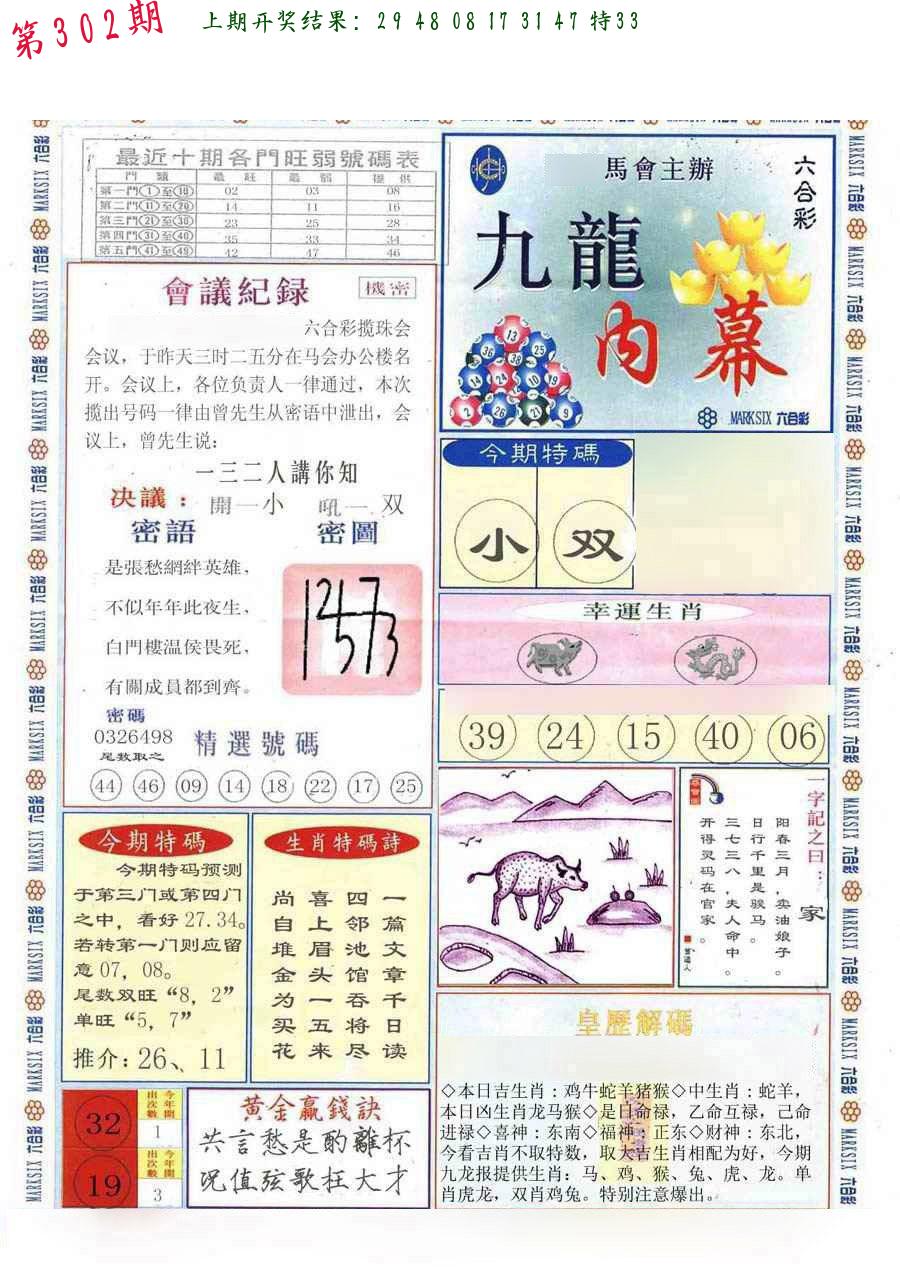 第302期
上期开奖结果: 29 48 08 17 31 47 特33
最近十期各門旺弱號碼表
門 類 最 旺 最 弱 提 供
第一門①至⑩ 02 03 08
第二門⑪至⑳ 14 11 16
第三門㉑至㉚ 23 25 28
第四門㉛至㊵ 35 33 34
第五門㊶至㊾ 42 47 46
會議紀録
機密
六合彩揽珠会
会议，于昨天三时二五分在马会办公楼名
开。会议上，各位负责人一律通过，本次
揽出号码一律由曾先生从密语中泄出，会
议上，曾先生说：
一三二人講你知
决議：開一小 吼一双
密語
密圖
是張愁網絆英雄，
不似年年此夜生，
白門樓温侯畏死，
有關成員都到齊。
密碼
0326498
尾数取之
精選號碼
44 46 09 14 18 22 17 25
馬會主辦
六合彩
九龍
内幕
MARKSIX 六合彩
今期特碼
小 双
幸運生肖
39 24 15 40 06
一字記之曰：家
阳春三月，卖油娘子。
日行千里是骏马。
三七三八，夫人命中。
开得灵码在官家。
今期特碼
今期特码预测
于第三门或第四门
之中，看好27.34。
若转第一门则应留
意07，08。
尾数双旺“8，2”
单旺“5，7”
推介：26、11
生肖特碼詩
一篇文章千日读
四邻池馆吞将尽
喜上眉头一五来
尚自堆金为买花
32
今年開出次數
1
19
今年開出次數
3
黄金赢錢訣
共言愁是酌離杯
况值弦歌枉大才
皇歷解碼
◇本日吉生肖：鸡牛蛇羊猪猴◇中生肖：蛇羊，
本日凶生肖龙马猴◇是日命禄，乙命互禄，己命
进禄◇喜神：东南◇福神：正东◇财神：东北，
今看吉肖不取特数，取大吉生肖相配为好，今期
九龙报提供生肖：马、鸡、猴、兔、虎、龙。单
肖虎龙，双肖鸡兔。特别注意爆出。